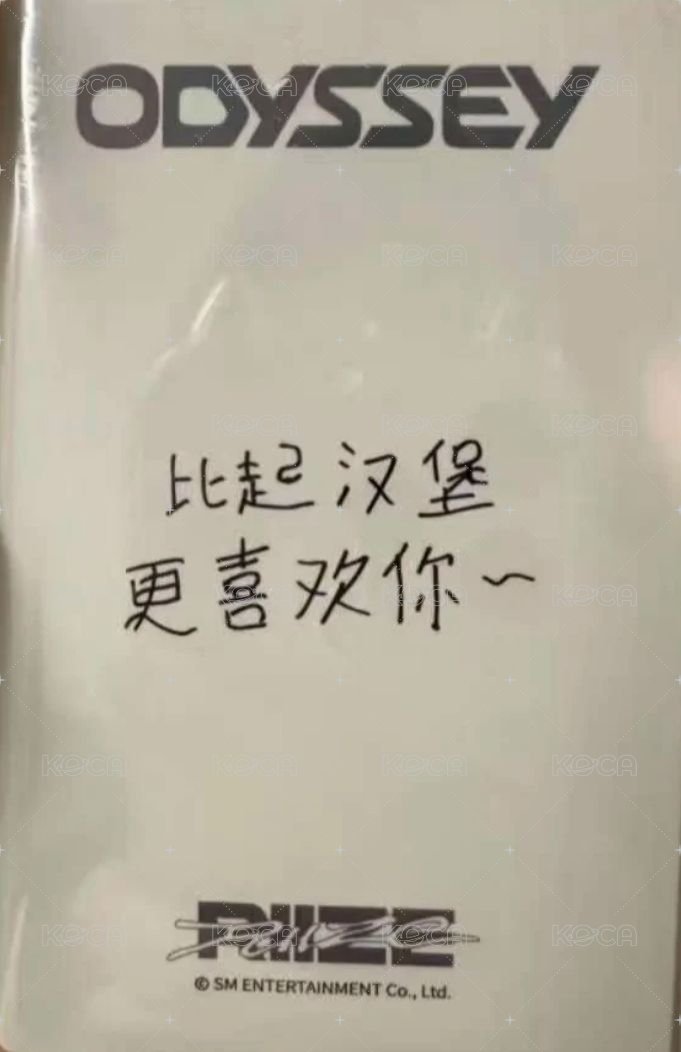 ODYSSEY
比起汉堡
更喜欢你~
RIIZE
© SM ENTERTAINMENT Co., Ltd.
KOCA